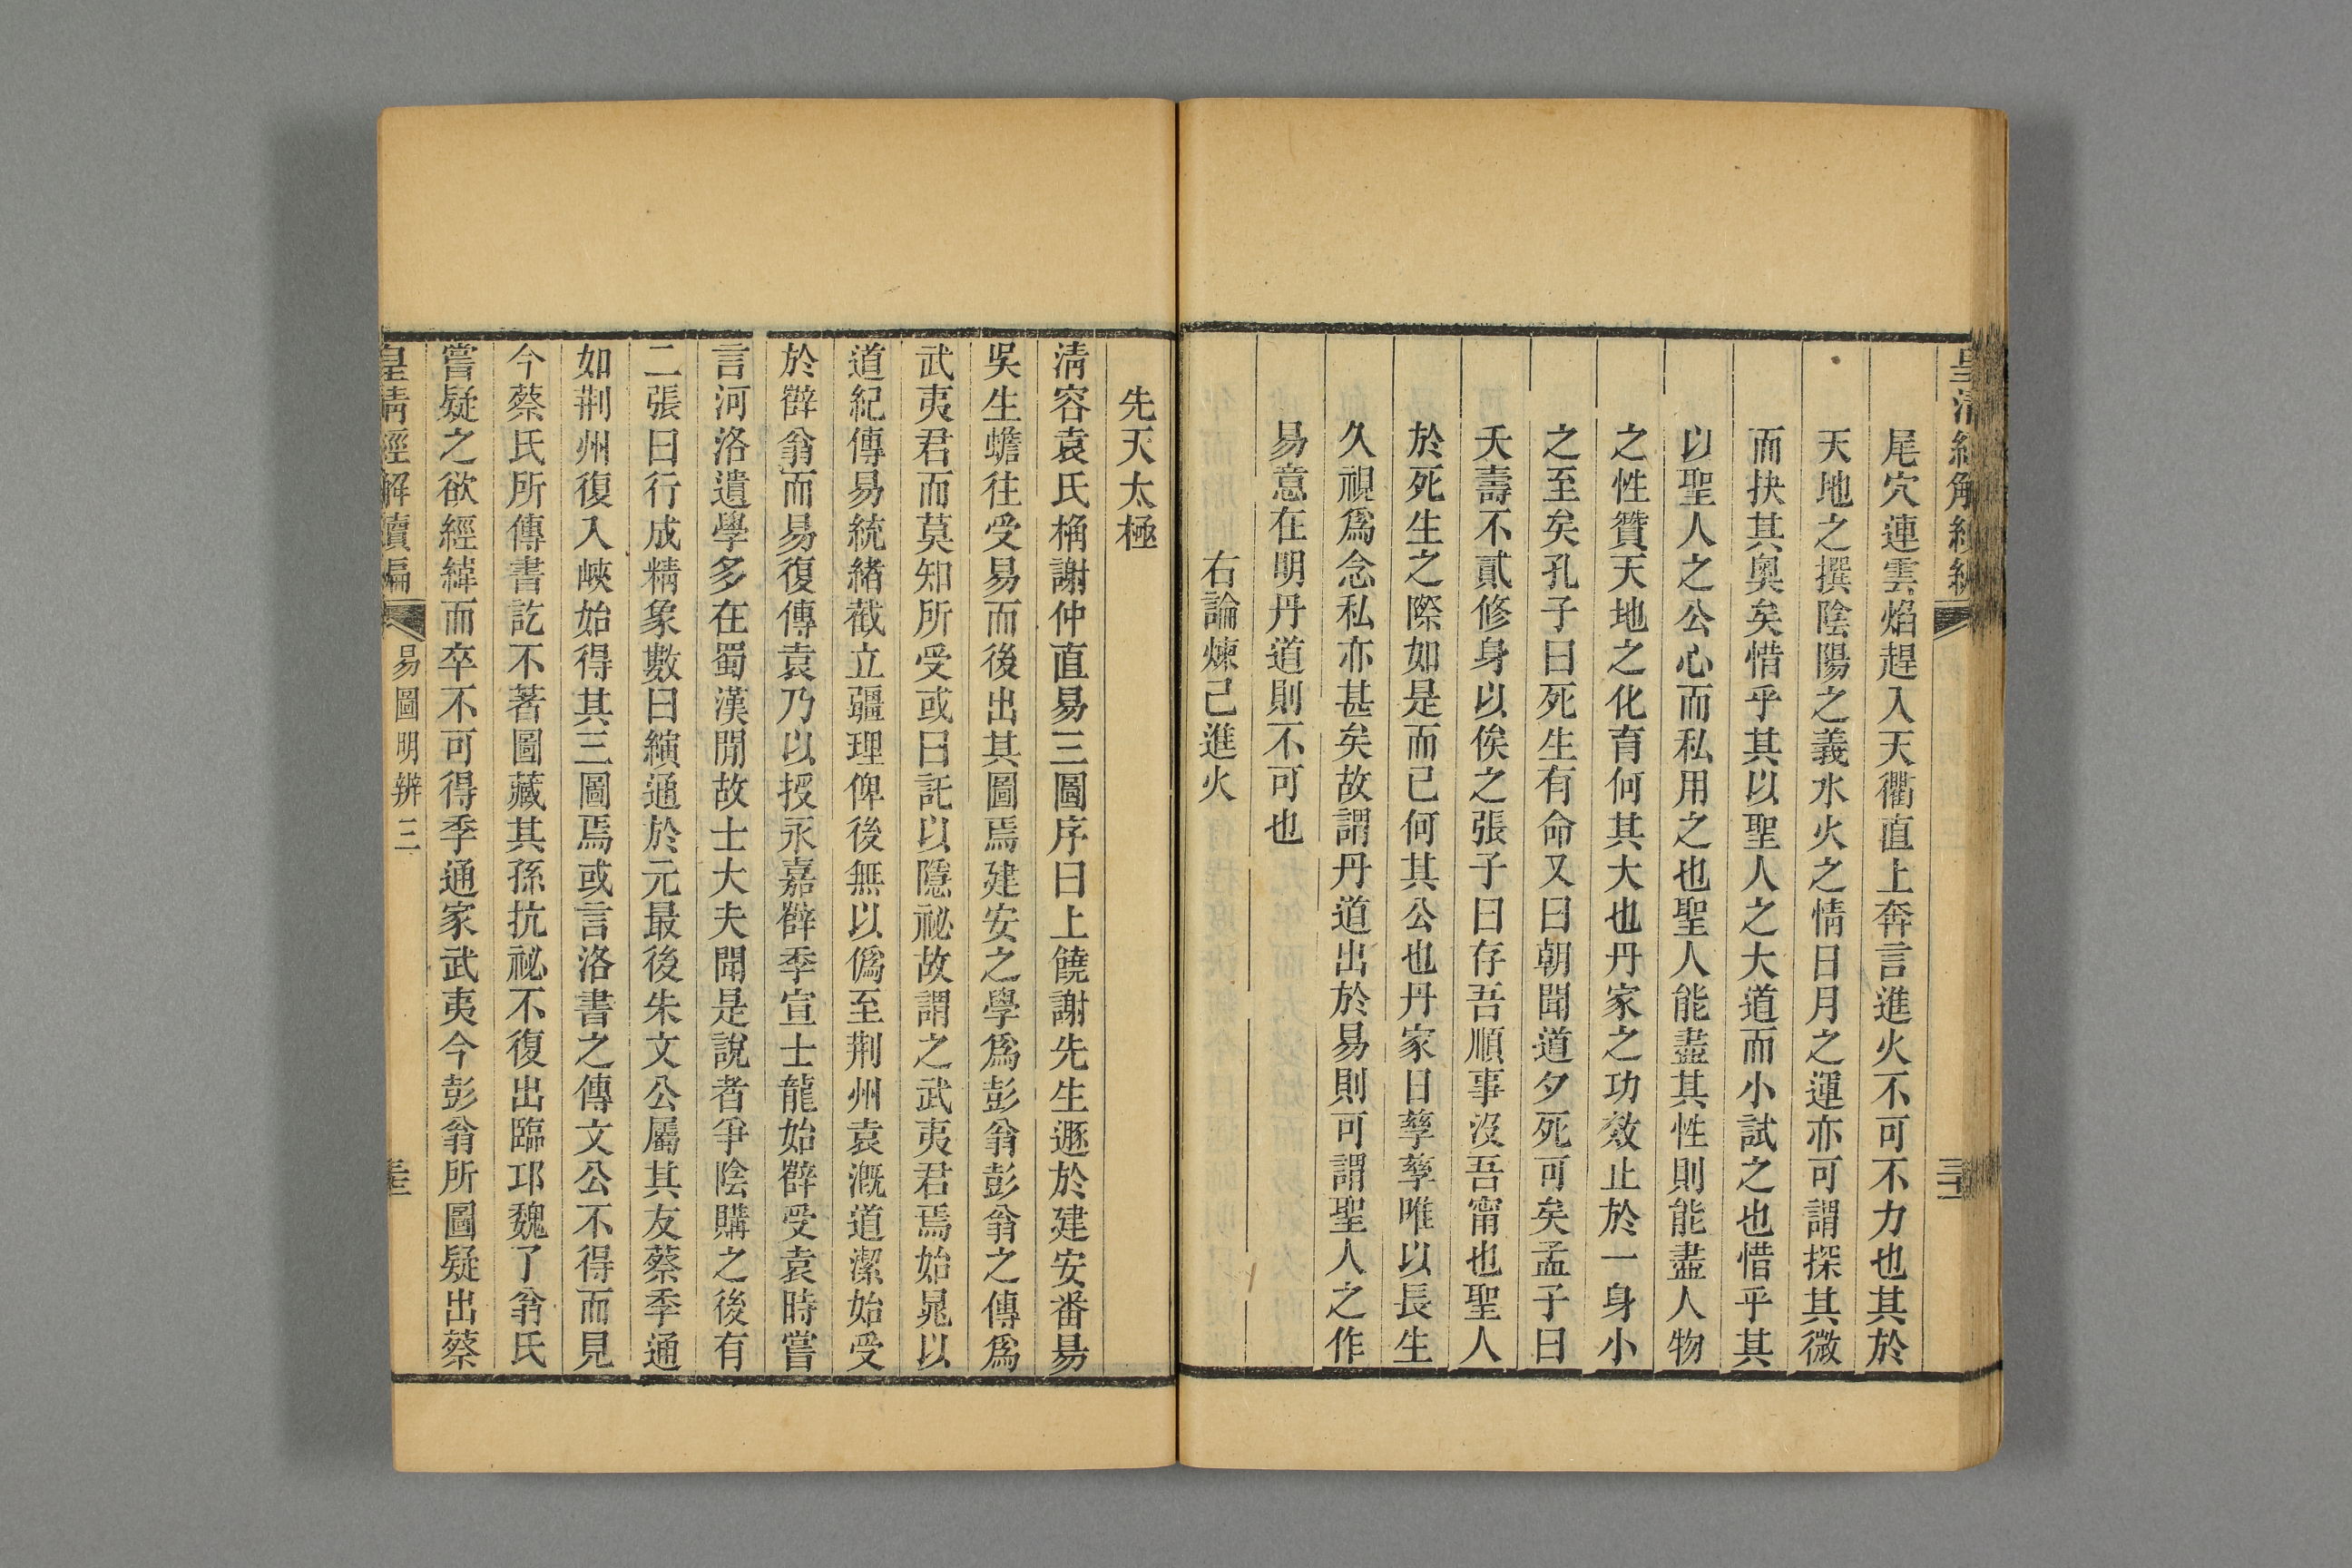 皇清經解續編
尾穴連雲焰趕入天衢直上奔言進火不可不力也其於
天地之撰陰陽之義水火之情日月之運亦可謂探其微
而抉其奧矣惜乎其以聖人之大道而小試之也惜乎其
以聖人之公心而私用之也聖人能盡其性則能盡人物
之性贊天地之化育何其大也丹家之功效止於一身小
之至矣孔子曰死生有命又曰朝聞道夕死可矣孟子曰
夭壽不貳修身以俟之張子曰存吾順事沒吾甯也聖人
於死生之際如是而已何其公也丹家日孳孳唯以長生
久視爲念私亦甚矣故謂丹道出於易則可謂聖人之作
易意在明丹道則不可也
右論煉己進火
先天太極
淸容袁氏桷謝仲直易三圖序曰上饒謝先生遯於建安番昜
吳生蟾往受易而後出其圖焉建安之學爲彭翁彭翁之傳爲
武夷君而莫知所受或曰託以隱祕故謂之武夷君焉始晁以
道紀傳易統緒截立疆理俾後無以僞至荆州袁溉道潔始受
於薛翁而易復傳袁乃以授永嘉薛季宣士龍始薛受袁時嘗
言河洛遺學多在蜀漢閒故士大夫聞是說者爭陰購之後有
二張曰行成精象數曰縯通於元最後朱文公屬其友蔡季通
如荆州復入峽始得其三圖焉或言洛書之傳文公不得而見
今蔡氏所傳書訖不著圖藏其孫抗祕不復出臨邛魏了翁氏
嘗疑之欲經緯而卒不可得季通家武夷今彭翁所圖疑出蔡
皇清經解續編 易圖明辨三